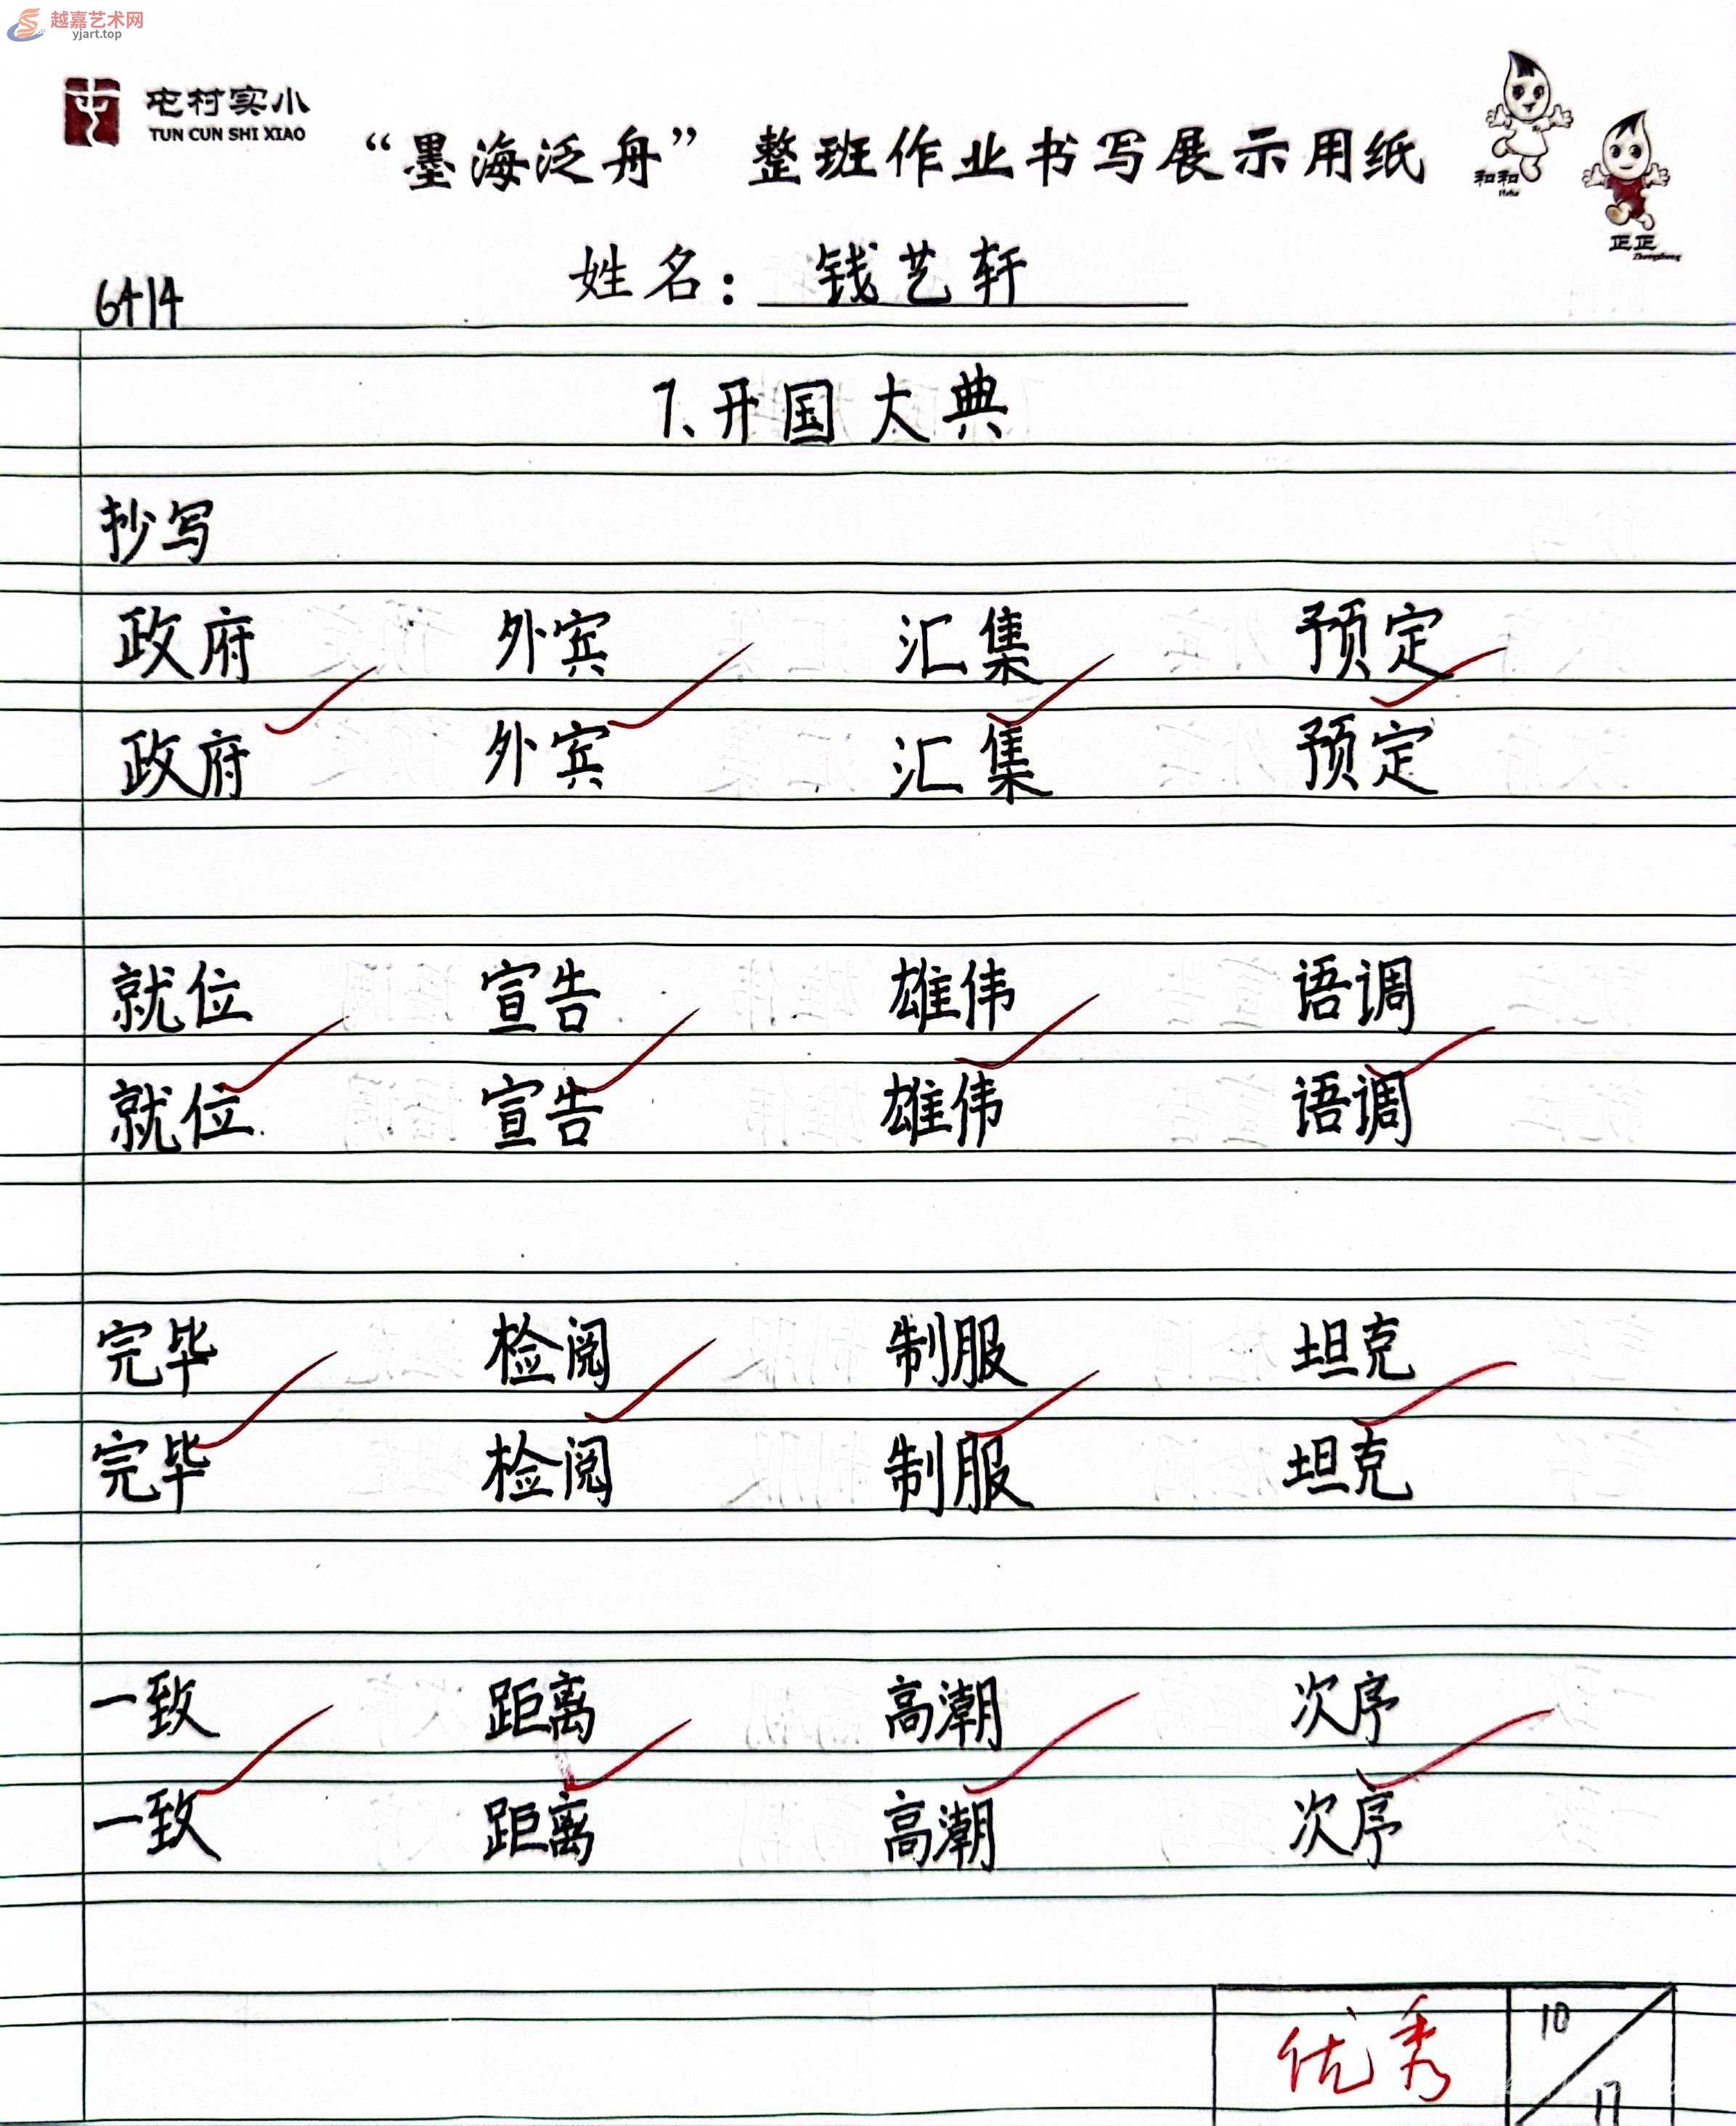 越嘉艺术网
yjart.top
屯村实小
TUN CUN SHI XIAO
“墨海泛舟”整班作业书写展示用纸
和和
Hehe
正正
Zhengzheng
6414
姓名：钱艺轩
7、开国大典
抄写
政府 外宾 汇集 预定
政府 外宾 汇集 预定
就位 宣告 雄伟 语调
就位 宣告 雄伟 语调
完毕 检阅 制服 坦克
完毕 检阅 制服 坦克
一致 距离 高潮 次序
一致 距离 高潮 次序
优秀 10
17